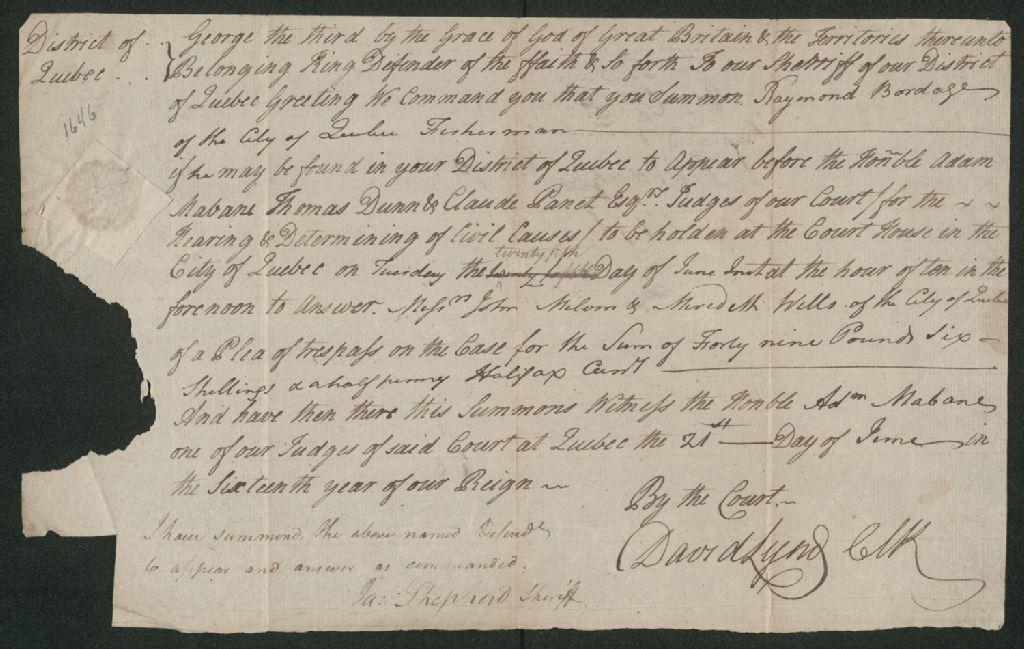 District of
Quebec
1646
George the third by the Grace of God of Great Britain & the Territories thereunto
Belonging King Defender of the ffaith & So forth To our Sherriff of our District
of Quebec Greeting We Command you that you Summon Raymond Bordage
of the City of Quebec Fisherman
if he may be found in your District of Quebec to Appear before the Honble Adam
Mabane Thomas Dunn & Claude Panet Esqrs. Judges of our Court / for the
Hearing & Determining of Civil Causes / to be holden at the Court House in the
twentyfifth
City of Quebec on Tuesday the Day of June Inst at the hour of ten in the
forenoon to Answer. Messrs John Melvin & Meredith Wells of the City of Quebec
of a Plea of trespass on the Case for the Sum of Forty nine Pounds Six
Shillings & a half penny Halifax Curr.y
And have then there this Summons Witness the Honble Adm Mabane
one of our Judges of said Court at Quebec the 21st Day of June in
the Sixteenth year of our Reign
By the Court.
David Lynd Clk
I have summond the above named Defendt
to appear and answer as commanded.
Ja: Shepherd Sheriff